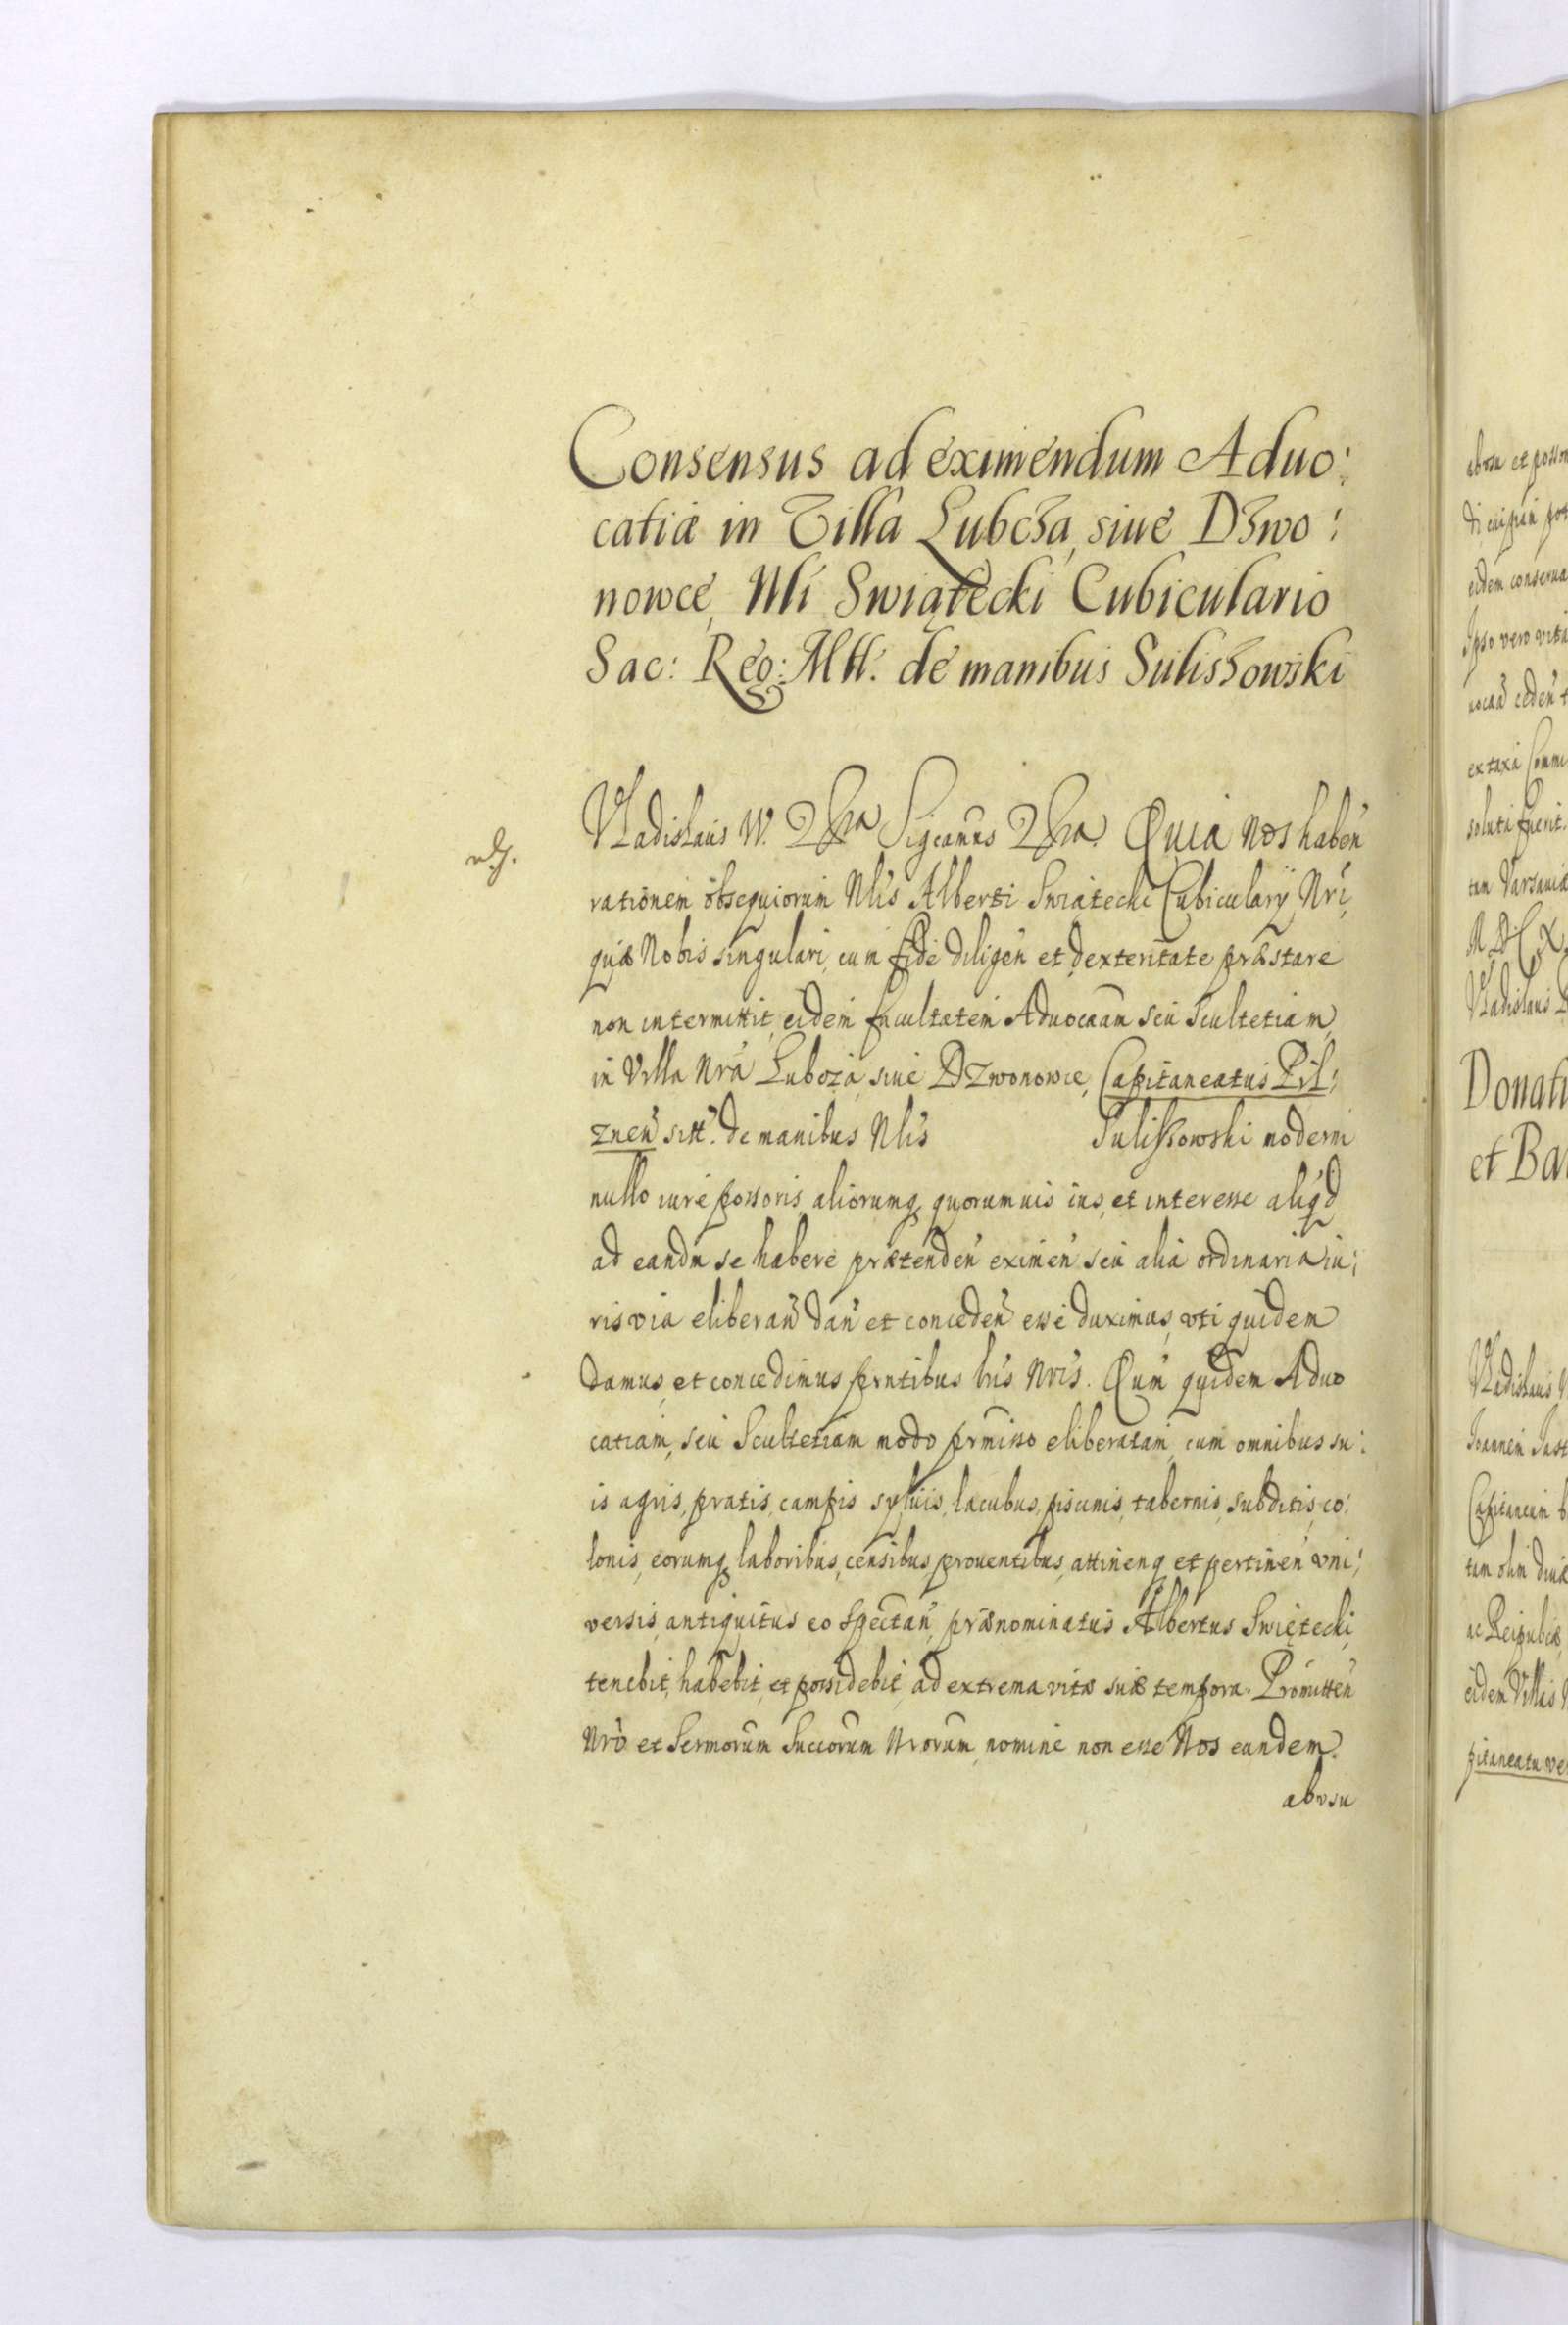 Consensus ad eximendum Aduo:
catiæ in Villa Lubcza, siue Dzwo:
nowce, Nli Swiątecki Cubiculario
Sac: Reg: Mtt. de manibus Suliszowski
Vladislaus IV. Quia Nos haben̄
rationem obsequiorum Nlis Alberti Swiątecki Cubicularÿ Nrī,
quæ Nobis singulari, cum fide diligēn et dexteritate præstare
non intermittit, eidem facultatem Aduocaām seu Scultetiam,
in Villa Nrā Lubcza, siue Dzwonowce, Capitaneatus Pil:
znen̄ sitt. de manibus Nlis Suliszowski moderni
nullo iure possoris, aliorumq quorumuis ius, et interesse aliqd
ad eandm se habere prætenden̄ eximen̄ seu alia ordinaria iu:
ris via eliberan̄ dan̄ et conceden̄ esse duximus, vti quidem
damus, et concedimus prntibus lris Nris. Qum̄ quidem Aduo
catiam, seu Scultetiam modo prmisso eliberatam, cum omnibus su:
is agris, pratis, campis syluis, lacubus, piscinis, tabernis, subditis, co:
lonis, eorumq laboribus, censibus, prouentibus, attinenq et pertinen̄ vni:
versis, antiquitus eo spectan̄, prænominatus Albertus Swiętecki,
tenebit, habebit, et possidebit, ad extrema vitæ suæ tempora. Promitten̄
Nro et Sermorum Succorum Nrorum, nomine non esse Nos eundem.
abvsu
abvsu et
eidem
Ipso vero vitæ
ex taxa Commi
soluta fuerit.
Vladislaus
Donati
et Ba
Vladislaus
Capitaneum
tam olim
ac Reipublicæ
eidem Villas
pitaneatu